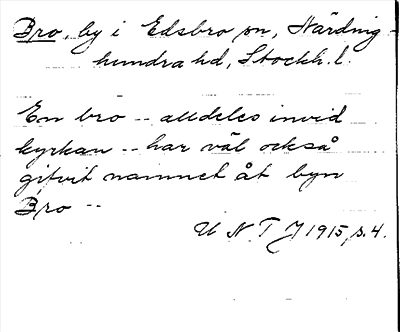 Bro, by i Edsbro sn, Närding-
hundra hd, Stockh. l.
En bro -- alldeles invid
kyrkan -- har väl också
gifvit namnet åt byn
Bro --
U N T J 1915, s. 4.